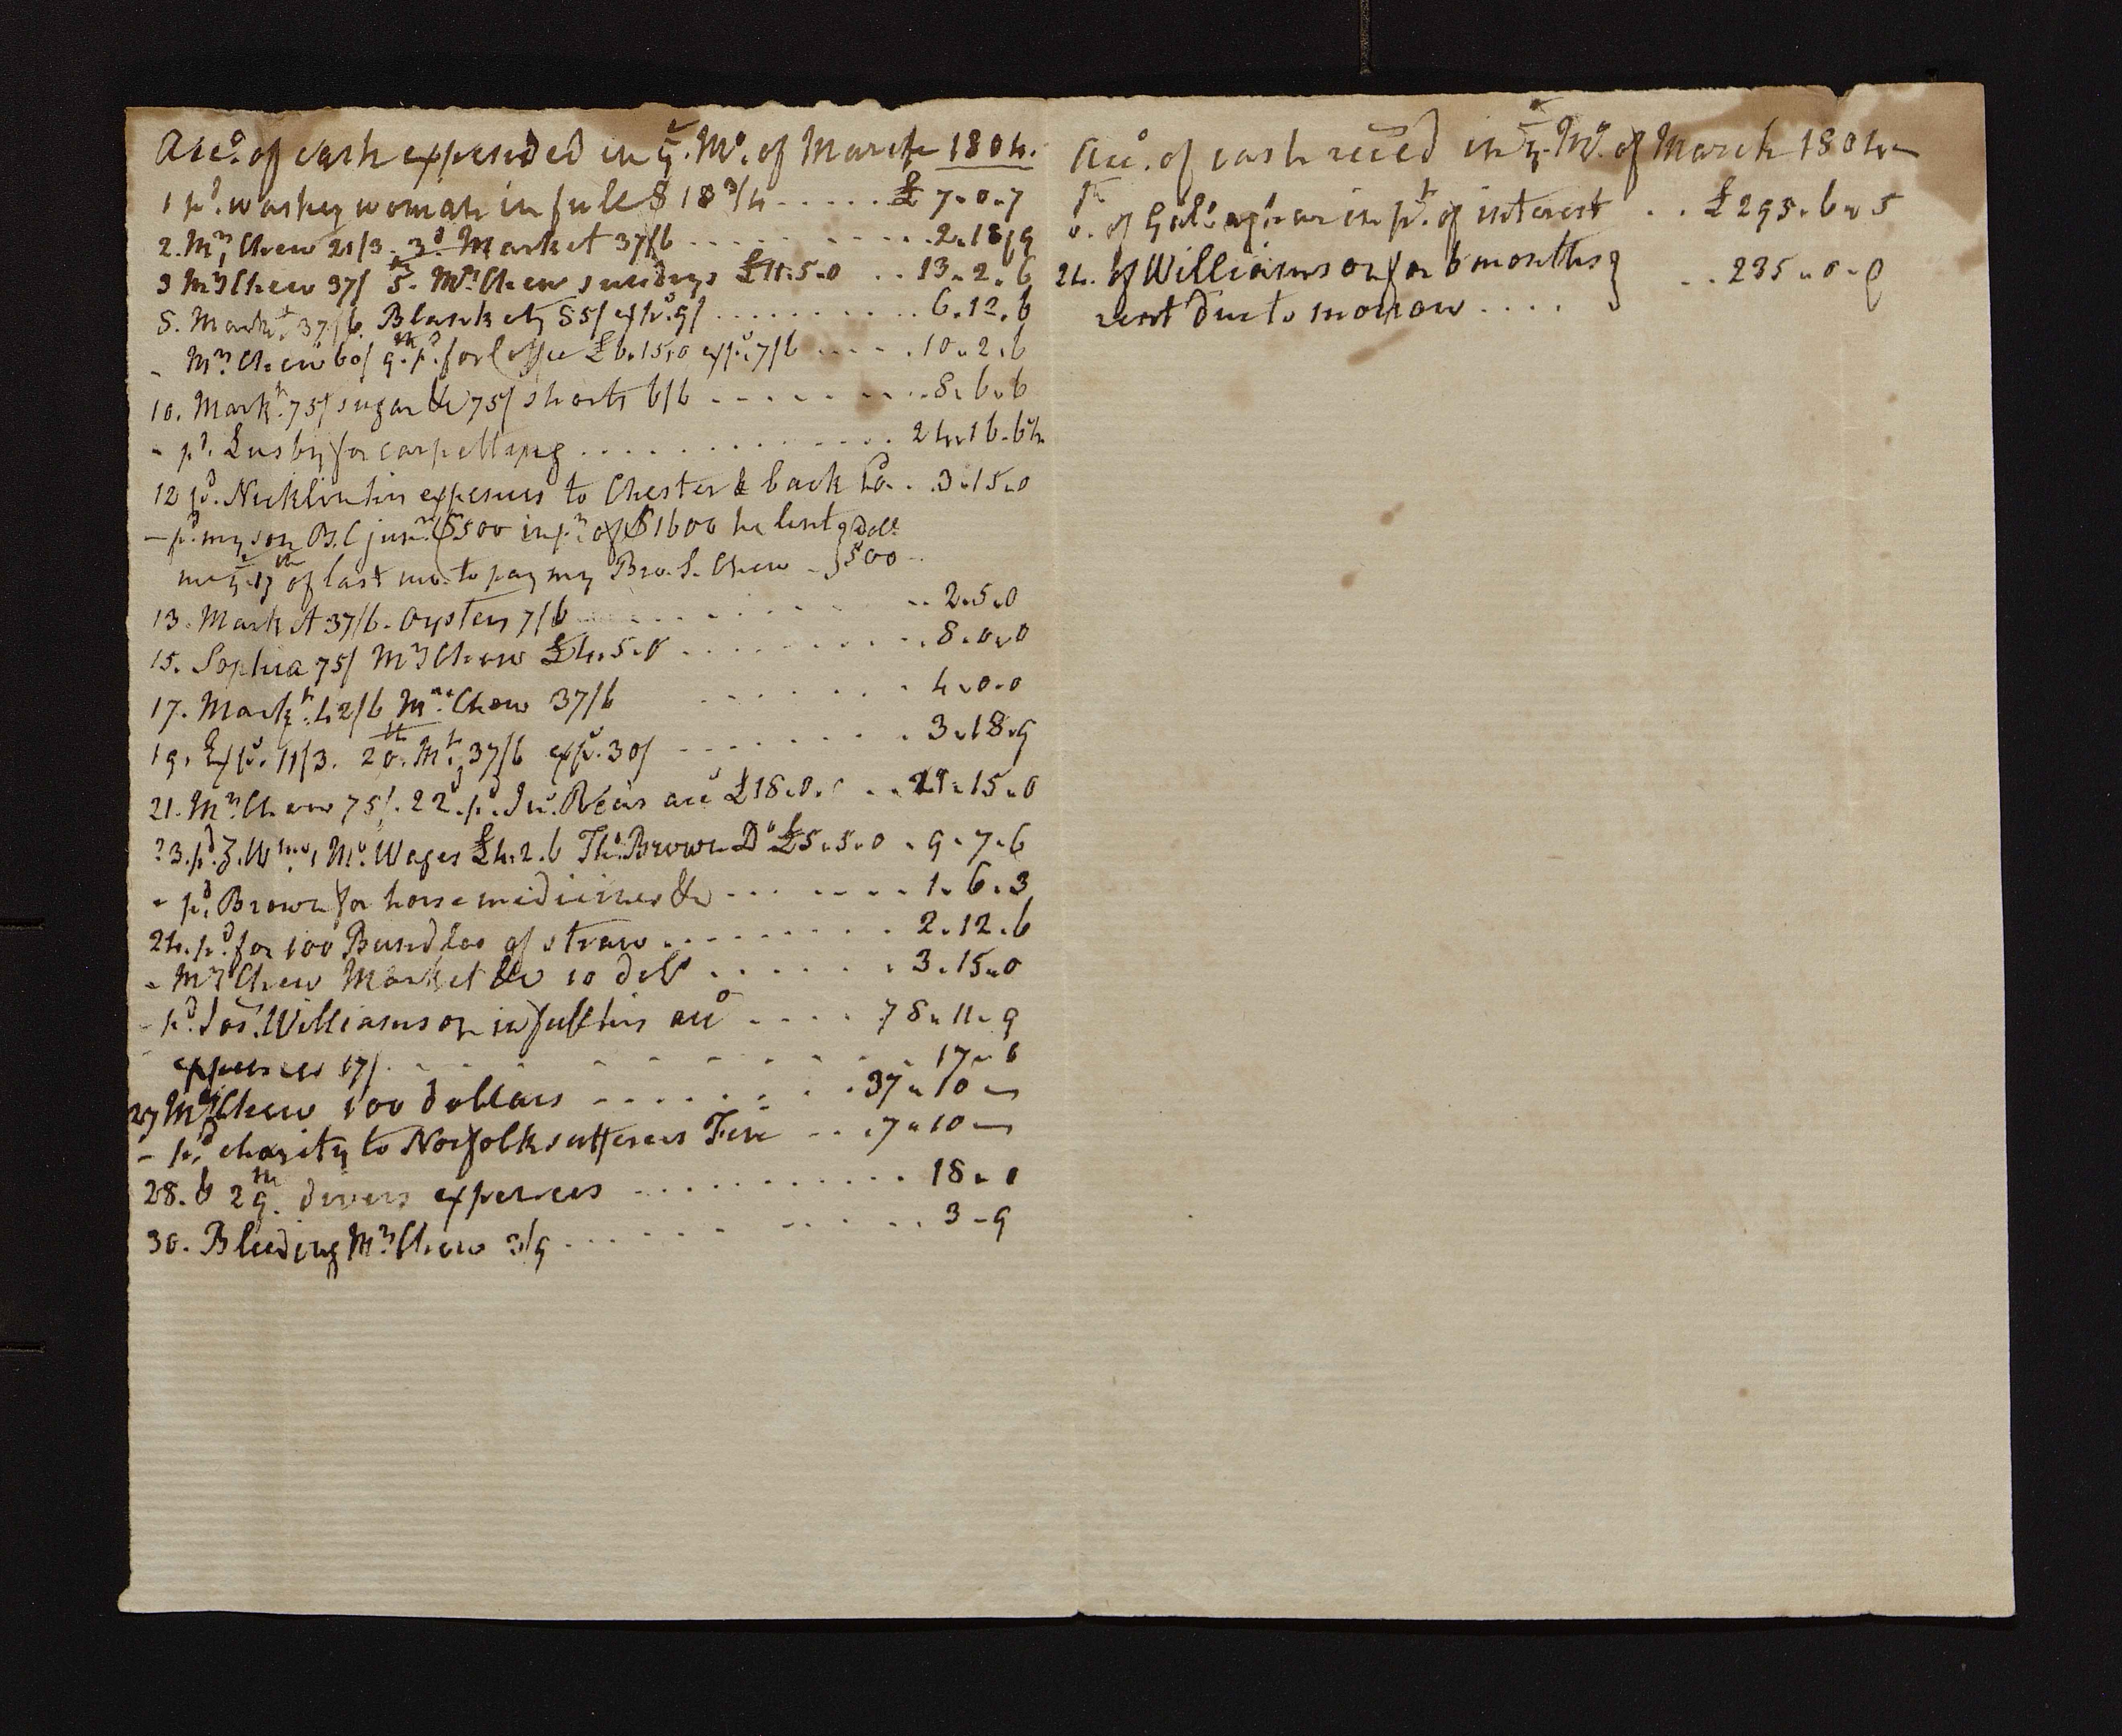 Acco. of cash expended in ye. Mo. of March 1804.
1 pd. washey woman in full $ 18 3/4 ..... £ 7.0.7
2. Mrs Chew 21/3. 3d Market 37/6 ......... 2.18.9
3 Mrs Chew 37/ 5th. Mrs. Chew sundrys £11.5.0 .. 13.2.6
8. Markt. 37/6 Blankets 85/ exps. 9/ .......... 6.12.6
- Mrs. Chew 60/ 9th. pd. for Coffee £6.15.0 exps. 7/6 .... 10.2.6
10. Markt. 75/ sugar &c 75/ shorts 6/6 ........ 8.6.6
- pd. Lusby for carpetting ........ 24.16.6
12 pd. Nicklin his expences to Chester & back 3.15.0
- pd. my son B.C junr. $500 in pt of $1600 he lent } Doll.
me ye 17th of last mo. to pay my Bro. S. Chew - } 500
13. Market 37/6. Oysters 7/6 ........ 2.5.0
15. Sophia 75/ Mrs Chew £4.5.0 ........ 8.0.0
17. Markt. 42/6 Mrs. Chew 37/6 ...... 4.0.0
19. Exps. 11/3. 20th. Mt. 37/6 exps. 30/ ....... 3.18.9
21. Mrs. Chew 75/. 22d. pd. acco £18.0. .. 21.15.0
23. pd. Z. Wms. 1 Mo. Wages £4.2.6 Tho. Brown Do £5.5.0 . 9.7.6
- pd. Brown for horse medicines &c ....... 1.6.3
24. pd. for 100 Bundles of straw ......... 2.12.6
- Mrs Chew Market &c 10 dolls ...... 3.15.0
- pd. Jos. Williamson in full his acco .... 78.11.9
expences 17/ ........ 17.0
27 Mrs Chew 100 dollars ....... 37.10
- pd. charity to Norfolk sufferers Fire .. 7.10
28. & 29th. divers expences ........... 18.0
30. Bleeding Mrs Chew 3/9 .......... 3.9
Acco. of cash reced in ye. Mo. of March 1804
of in pt. of interest .. £295.6.5
24. of Williamson for 6 months } .. 235.0.0
rent due to morrow .... }